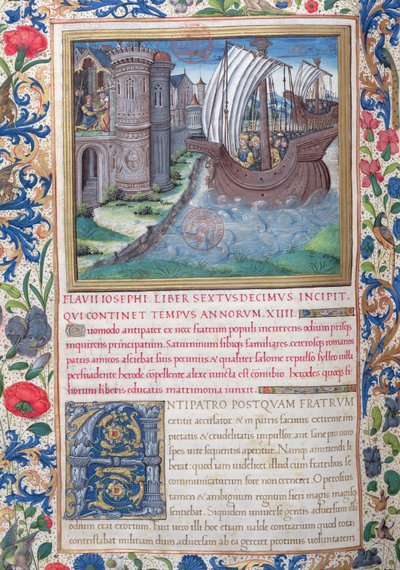 FLAVII IOSEPHI. LIBER SEXTUSDECIMUS INCIPIT.
QUI CONTINET TEMPUS ANNORUM. XIIII.
Quomodo antipater ex nece fratrum populi incurrens odium
inquirens principatum. Saturninum sibiq; familiares. ceterosq; romanos
patris amicos alliciebat suis pecuniis. & qualiter salome repulso sylleo iussa
persuadente herode copellente. alexe iuncta est conubio herodes quoq;
filiorum liberis educatis matrimonia iunxit.
ANTIPATRO POSTQUAM FRATRUM
extitit accusator & in patris facinus extreme im
pietatis & crudelitatis impulsor aut sane pro uoto
spes uite sequentis aperitur. Namq; mittendi li
berat quod iam uidelicet illud cum fratribus se
communicaturum fore non cerneret. Operosum
tamen & ambiguum regnum fieri magis magisq;
sentiebat. Siquidem uniuerse gentis aduersum ill
odium erat exortum. Fuit uero illi hoc etiam ualde contrarium quod totas
contristabat militum dum aduersum ab ea gereret protinus uoluntatem